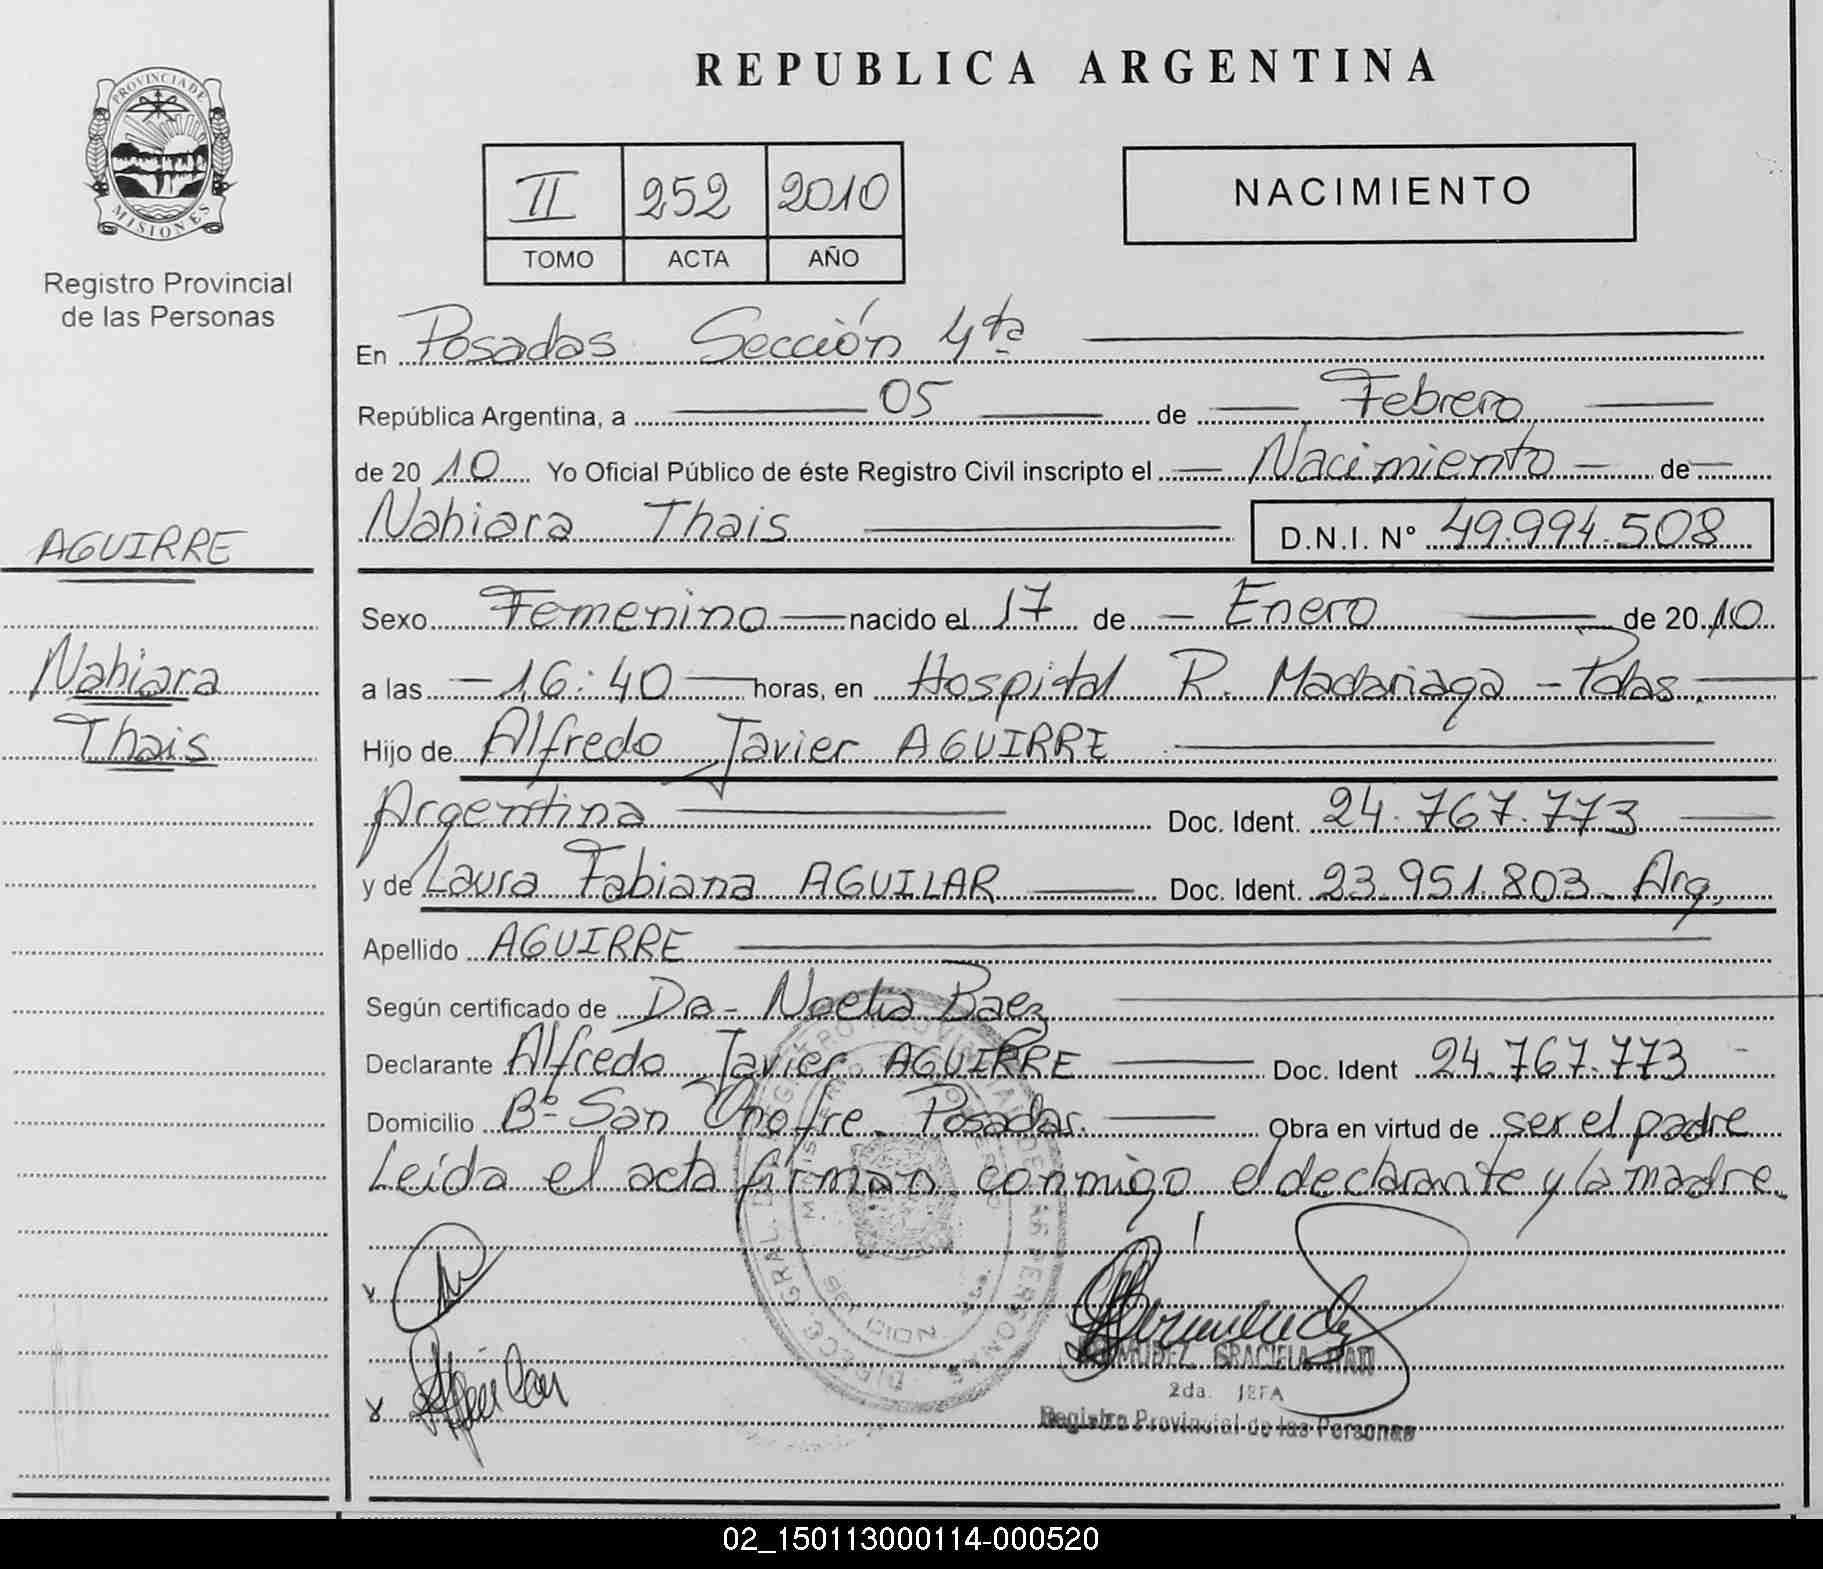 PROVINCIA DE
MISIONES
Registro Provincial
de las Personas
AGUIRRE
Nahiara
Thais
REPUBLICA ARGENTINA
II 252 2010
TOMO ACTA AÑO
NACIMIENTO
En Posadas Sección 4ta
República Argentina, a 05 de Febrero
de 20 10 Yo Oficial Público de éste Registro Civil inscripto el Nacimiento de
Nahiara Thais D.N.I. Nº 49.994.508
Sexo Femenino nacido el 17 de Enero de 20 10
a las 16:40 horas, en Hospital R. Madariaga - Pdas.
Hijo de Alfredo Javier AGUIRRE
Argentina Doc. Ident. 24.767.773
y de Laura Fabiana AGUILAR Doc. Ident. 23.951.803. Arg.
Apellido AGUIRRE
Según certificado de Dra- Noelia Baez
Declarante Alfredo Javier AGUIRRE Doc. Ident 24.767.773
Domicilio Bº San Onofre. Posadas. Obra en virtud de ser el padre
Leida el acta firman conmigo el declarante y la madre.
BERMUDEZ GRACIELA ITATI
2da. JEFA
Registro Provincial de las Personas
02_150113000114-000520